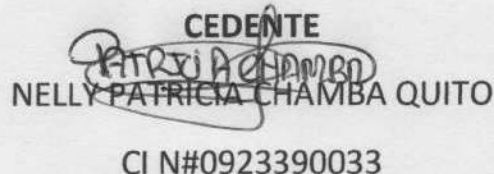 CEDENTE
PATRICIA CHAMBA
NELLY PATRICIA CHAMBA QUITO
CI N#0923390033